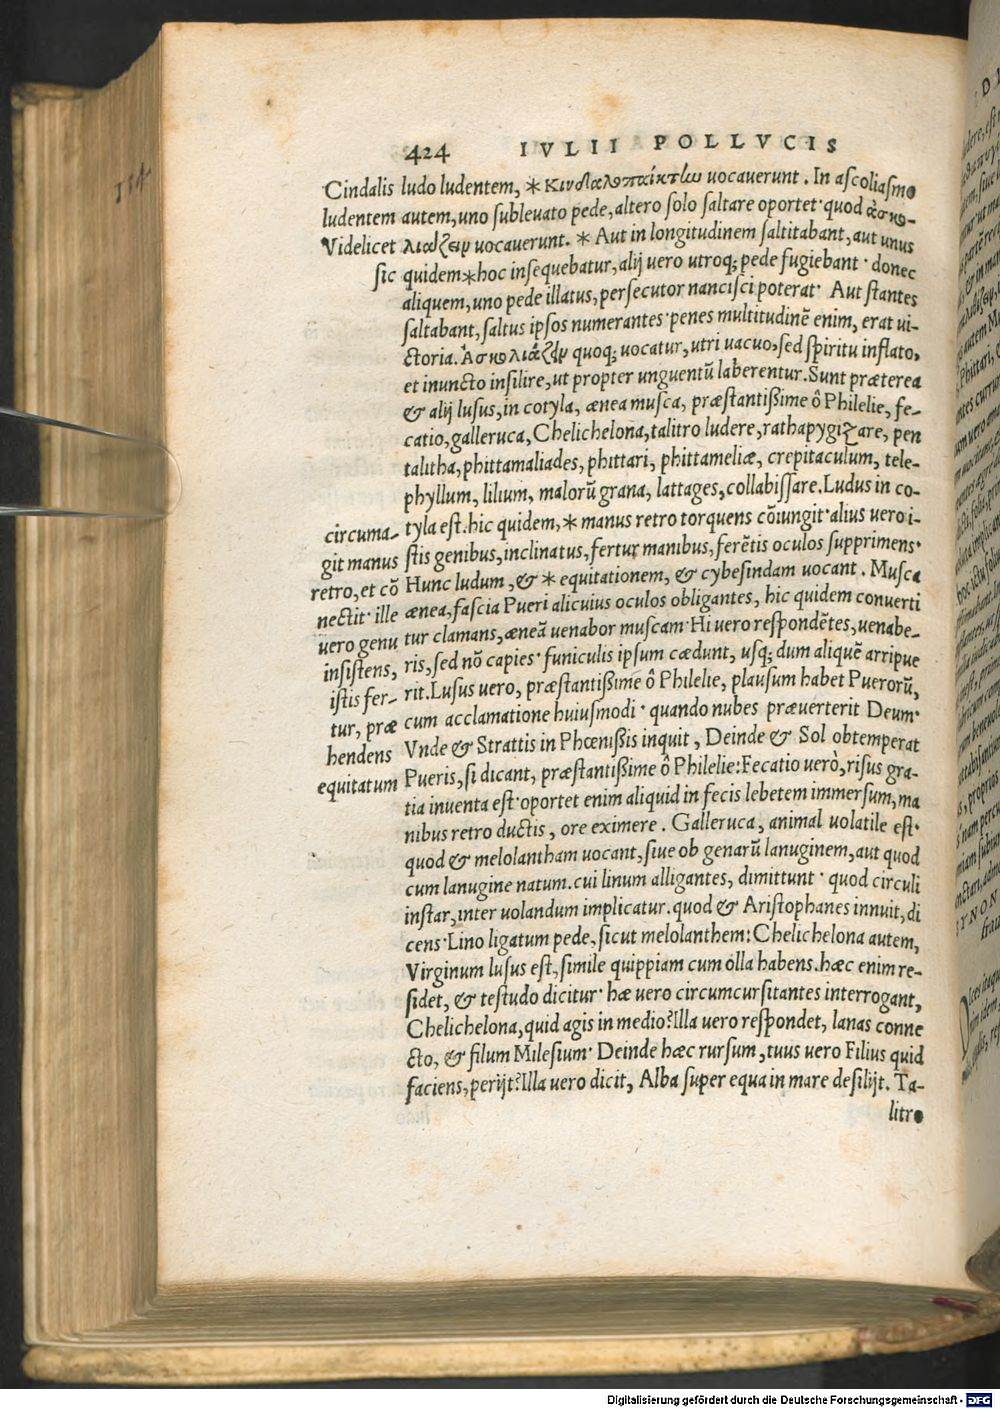 424 IVLII POLLVCIS
Cindalis ludo ludentem, * κινδαλοπαίκτω uocauerunt. In ascoliasmo
ludentem autem, uno subleuato pede, altero solo saltare oportet· quod ἀσκω-
Videlicet λιάζειν uocauerunt. * Aut in longitudinem saltitabant, aut unus
sic quidem*hoc insequebatur, alij uero utroq; pede fugiebant· donec
aliquem, uno pede illatus, persecutor nancisci poterat· Aut stantes
saltabant, saltus ipsos numerantes· penes multitudinē enim, erat ui-
ctoria. Ἀσκωλιάζειν quoq; uocatur, utri uacuo, sed spiritu inflato,
et inuncto insilire, ut propter unguentū laberentur. Sunt præterea
& alij lusus, in cotyla, ænea musca, præstantißime ô Philelie, fe-
catio, galleruca, Chelichelona, talitro ludere, rathapygizare, pen
talitha, phittamaliades, phittari, phittameliæ, crepitaculum, tele-
phyllum, lilium, malorū grana, lattages, collabissare. Ludus in co-
tyla est. hic quidem, * manus retro torquens cōiungit· alius uero i-
stis genibus, inclinatus, fertur manibus, ferētis oculos supprimens·
Hunc ludum, & * equitationem, & cybesindam uocant. Musca
ænea, fascia Pueri alicuius oculos obligantes, hic quidem conuerti
tur clamans, æneā uenabor muscam· Hi uero respondētes, uenabe-
ris, sed nō capies· funiculis ipsum cædunt, usq; dum aliquē arripue
rit. Lusus uero, præstantißime ô Philelie, plausum habet Puerorū,
cum acclamatione huiusmodi· quando nubes præuerterit Deum·
Vnde & Strattis in Phœnißis inquit, Deinde & Sol obtemperat
Pueris, si dicant, præstantißime ô Philelie: Fecatio uerò, risus gra-
tia inuenta est· oportet enim aliquid in fecis lebetem immersum, ma
nibus retro ductis, ore eximere. Galleruca, animal uolatile est·
quod & melolantham uocant, siue ob genarū lanuginem, aut quod
cum lanugine natum. cui linum alligantes, dimittunt· quod circuli
instar, inter uolandum implicatur. quod & Aristophanes innuit, di
cens· Lino ligatum pede, sicut melolanthem: Chelichelona autem,
Virginum lusus est, simile quippiam cum olla habens. hæc enim re-
sidet, & testudo dicitur· hæ uero circumcursitantes interrogant,
Chelichelona, quid agis in medio? Illa uero respondet, lanas conne
cto, & filum Milesium· Deinde hæc rursum, tuus uero Filius quid
faciens, perijt? Illa uero dicit, Alba super equa in mare desilijt. Ta-
litro
circuma-
git manus
retro, et cō
nectit· ille
uero genu
insistens,
istis fer-
tur, præ
hendens
equitatum
Digitalisierung gefördert durch die Deutsche Forschungsgemeinschaft - DFG